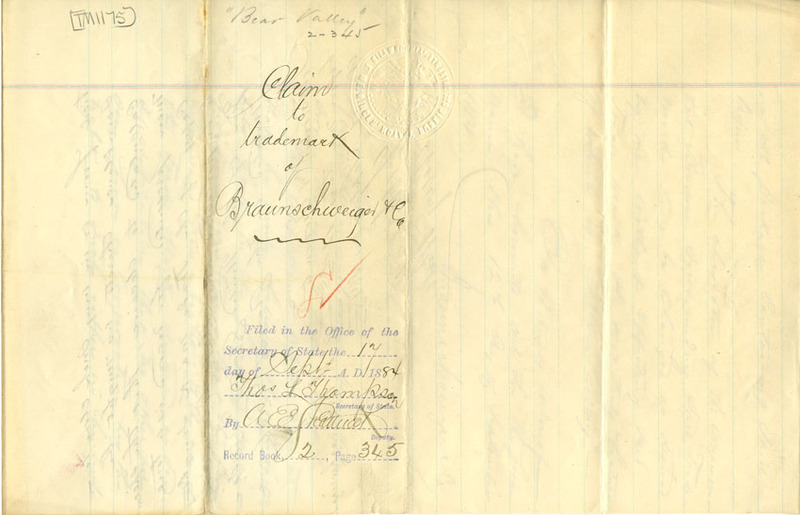 TM1175
"Bear Valley"
2-345
Claim
to
trademark
of
Braunschweiger & Co
Filed in the Office of the
Secretary of State the 12
day of Sept A. D. 1884
Thos L Thompson
Secretary of State.
By A E
Deputy.
Record Book, 2, Page 345